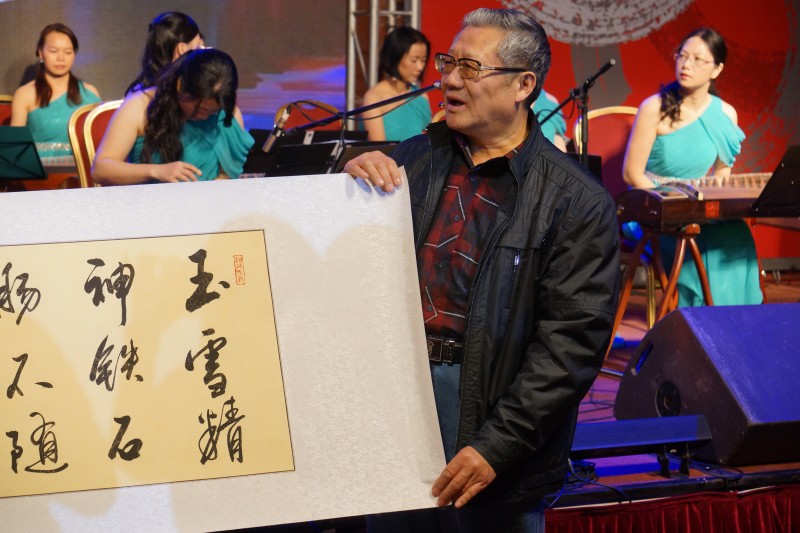 玉雪精
神铁石
肠不随